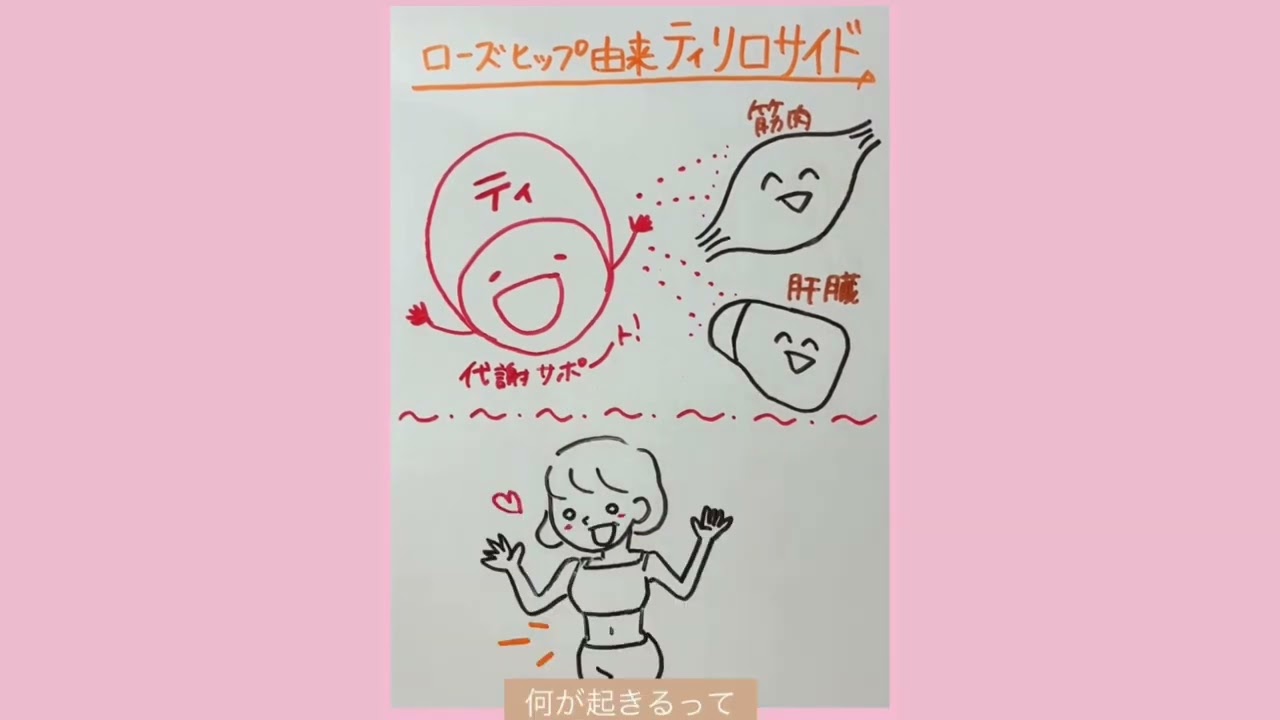 ローズヒップ由来ティリロサイド
筋肉
ティ
肝臓
代謝サポート!
何が起きるって